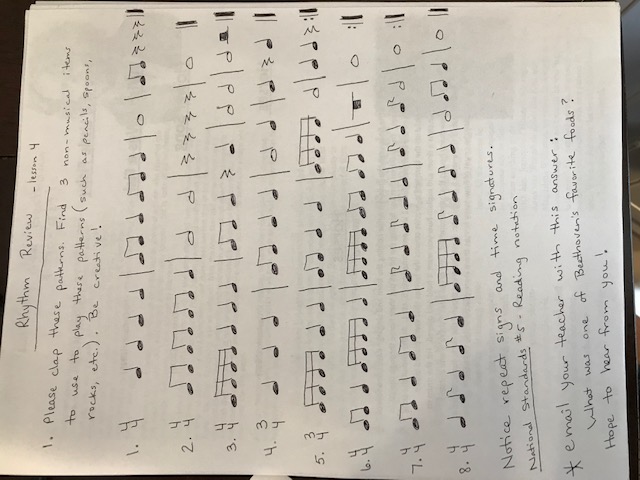 Rhythm Review - lesson 4
1. Please clap these patterns. Find 3 non-musical items
to use to play these patterns (such as pencils, spoons,
rocks, etc.). Be creative!
1. 4 4
2. 4 4
3. 4 4
4. 3 4
5. 3 4
6. 4 4
7. 4 4
8. 4 4
Notice repeat signs and time signatures.
National Standards #5 - Reading notation
* email your teacher with this answer:
What was one of Beethoven's favorite foods?
Hope to hear from you!